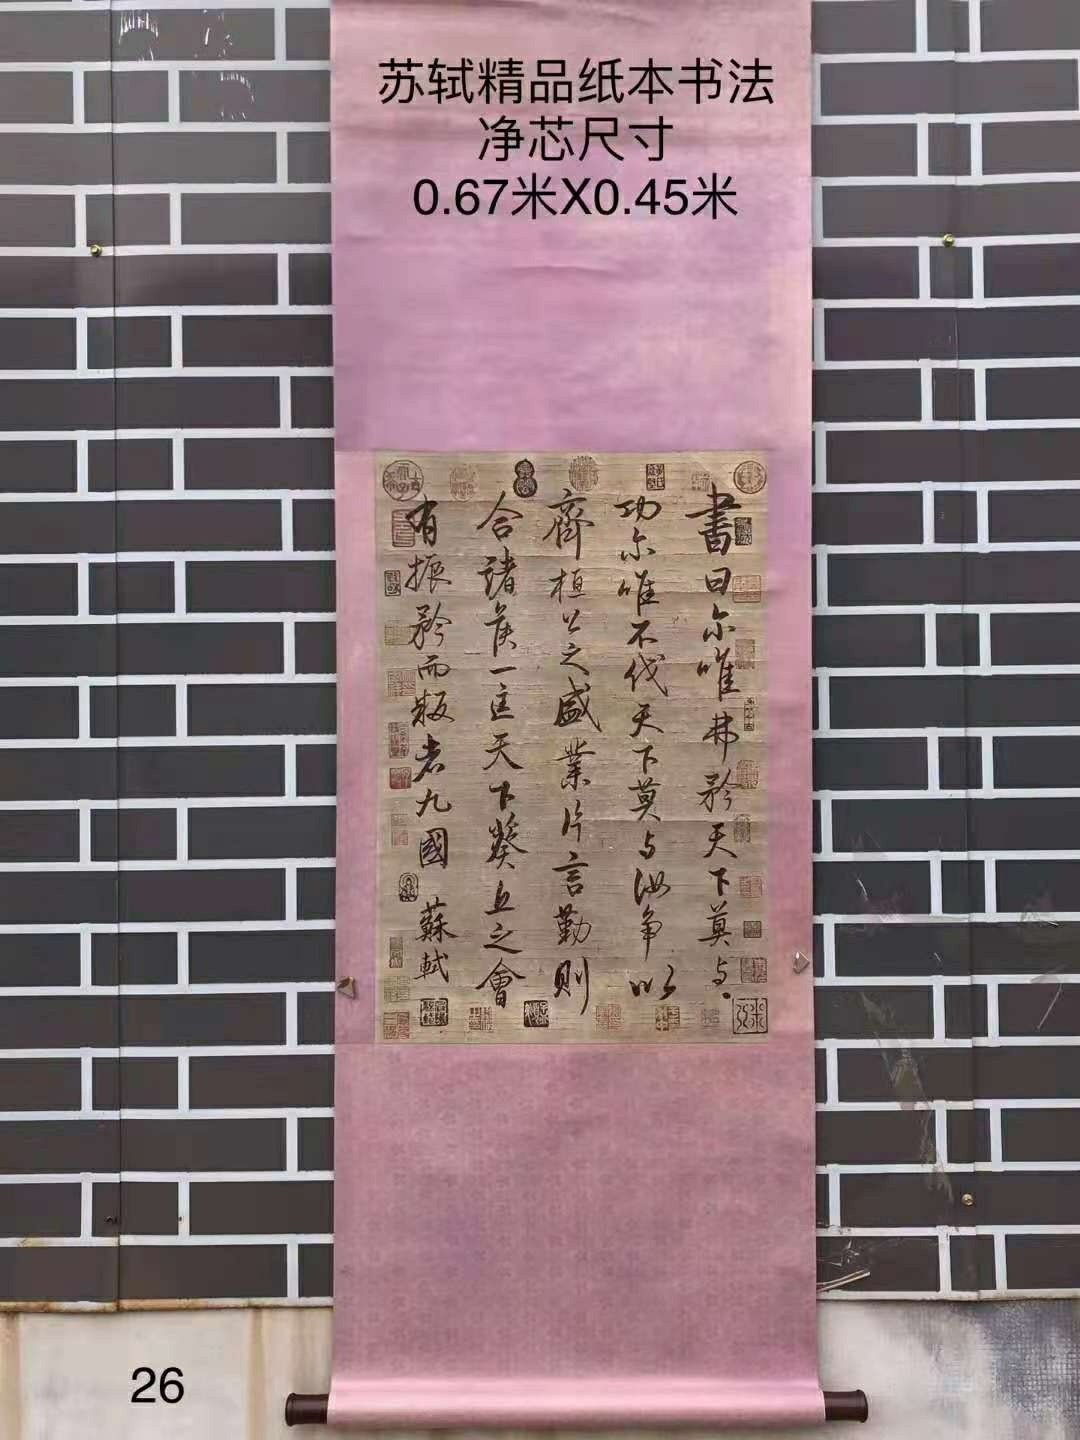 苏轼精品纸本书法
净芯尺寸
0.67米X0.45米
書曰尔唯弗矜天下莫与
功尔唯不伐天下莫与汝争以
齊桓公之盛業片言勤則
合諸侯一匡天下葵丘之會
有振矜而叛者九國
蘇軾
26